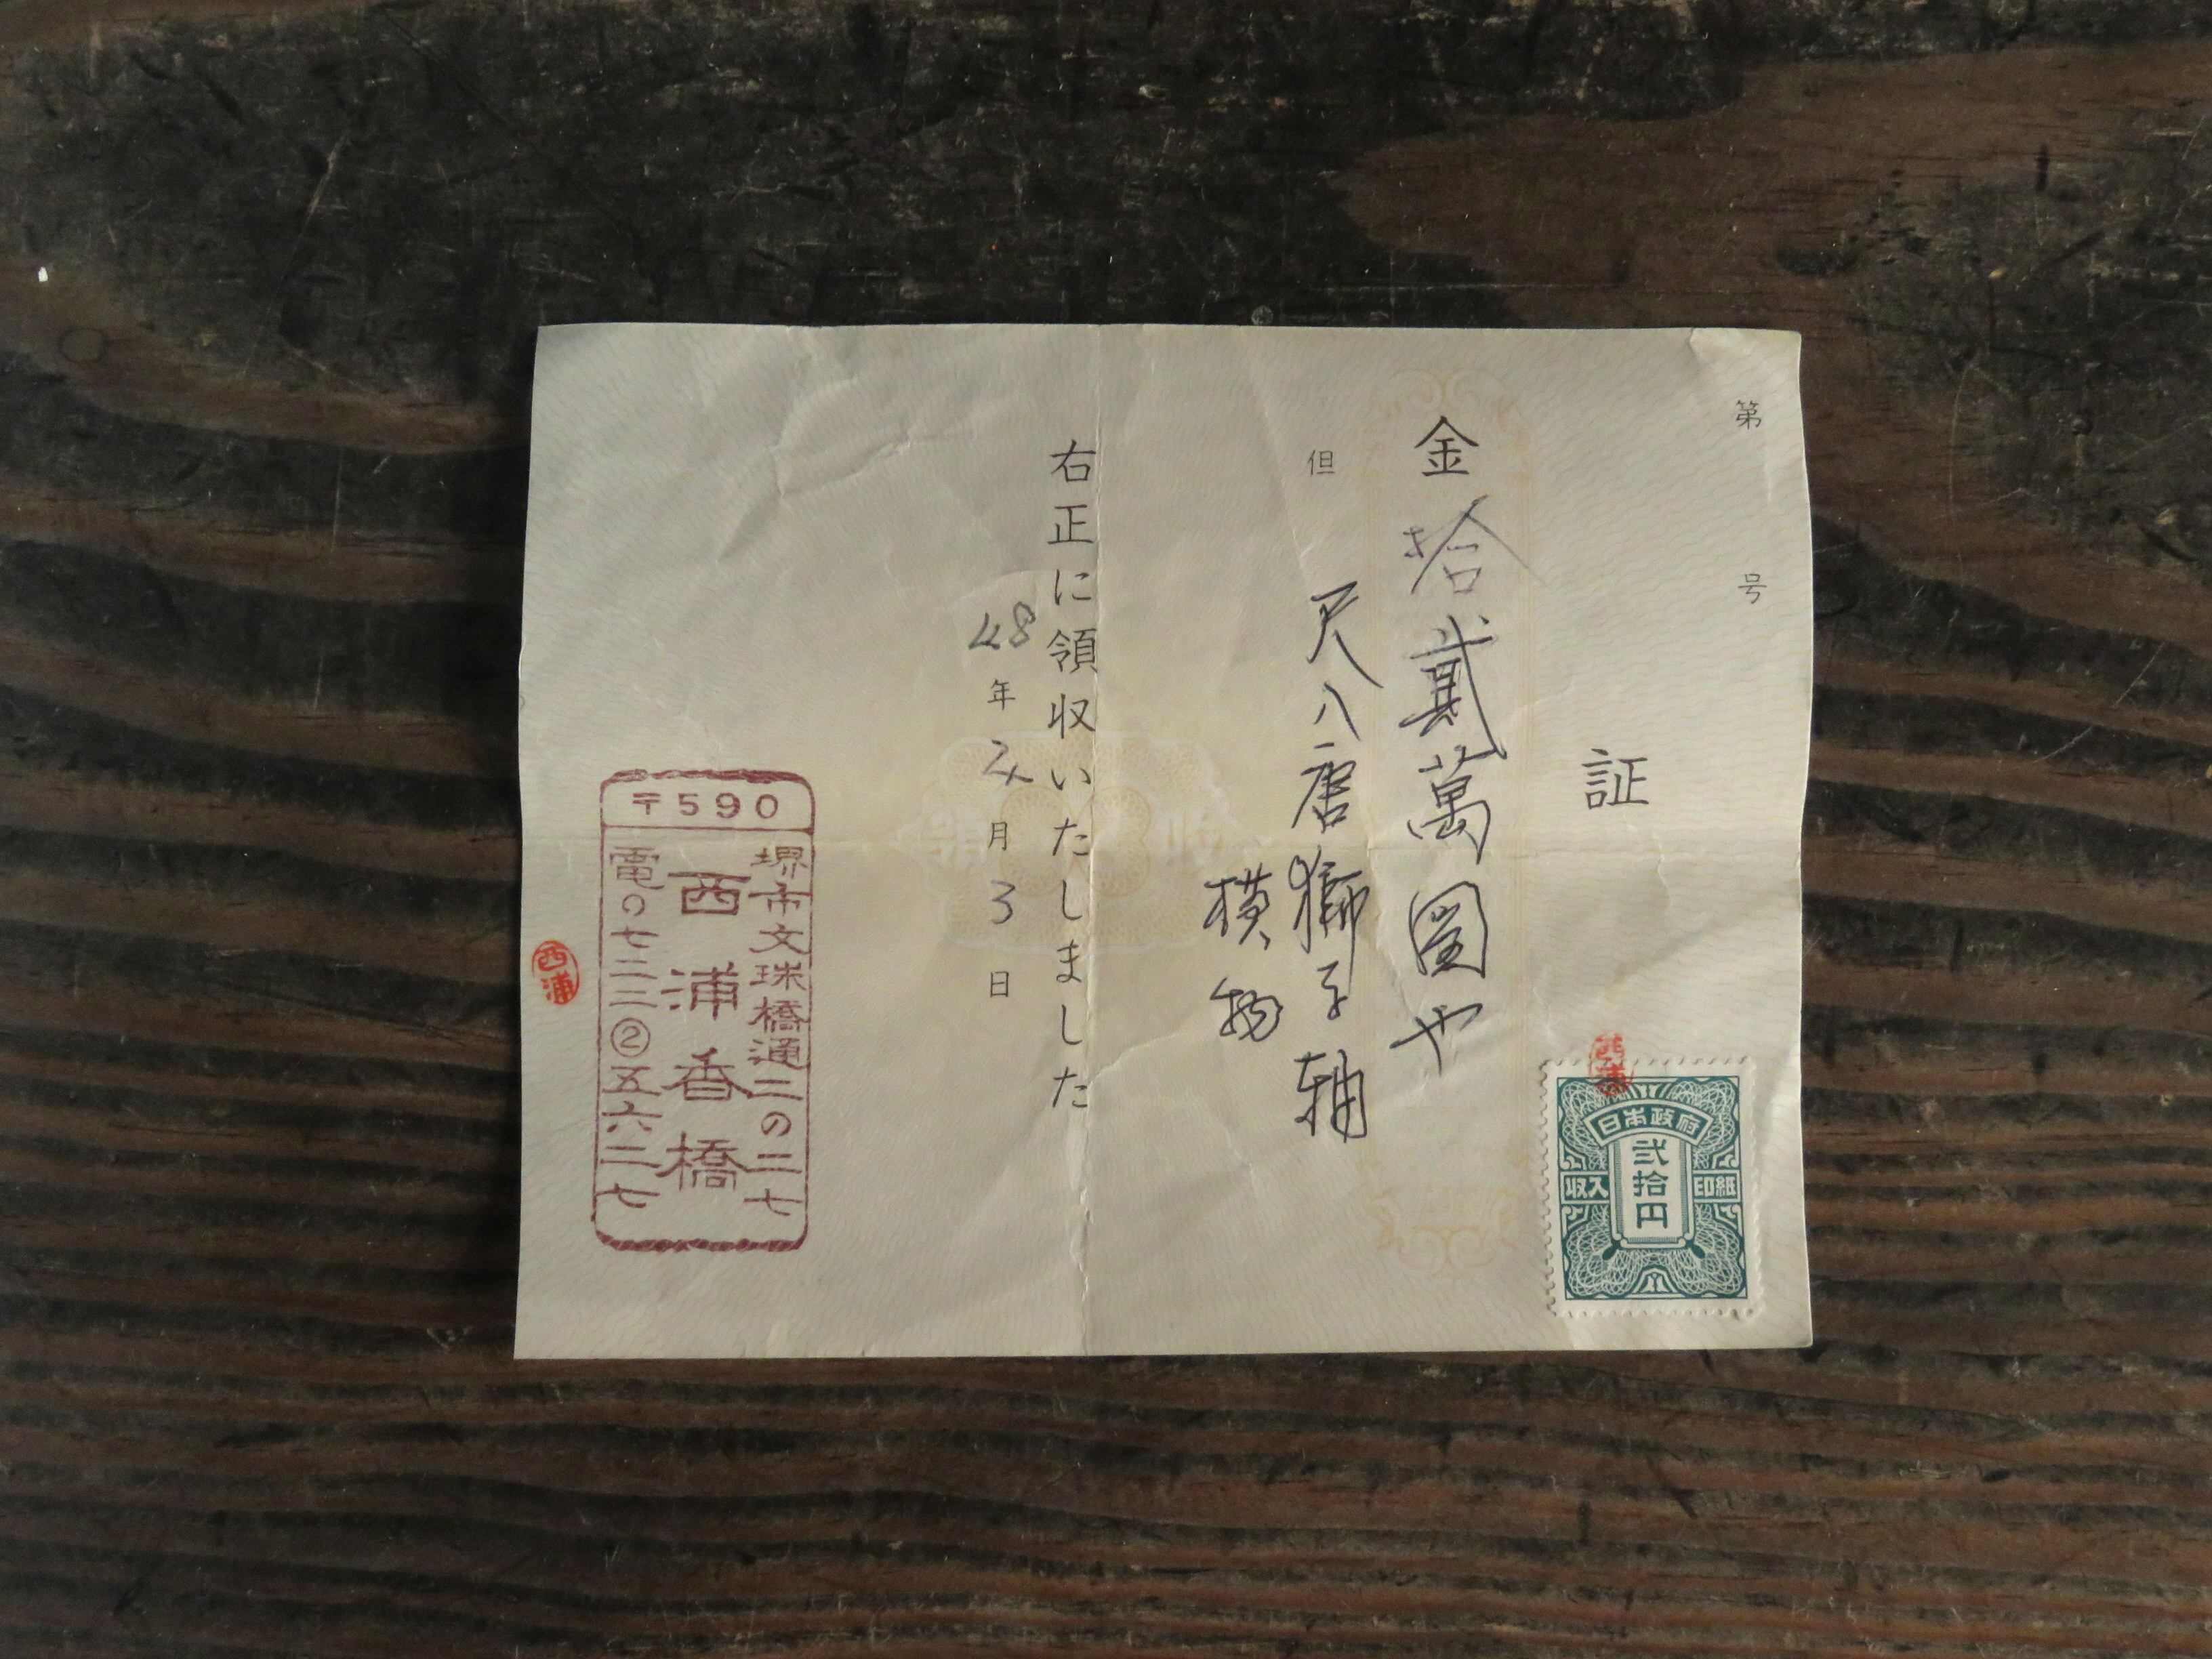 第 号
証
金 拾貳萬圓や
但 尺八唐獅子軸
横物
右正に領収いたしました
48年2月3日
〒590
堺市文珠橋通二の二七
西浦香橋
電〇七二二②五六二七
西浦
西浦
日本政府
弐拾円
収入印紙